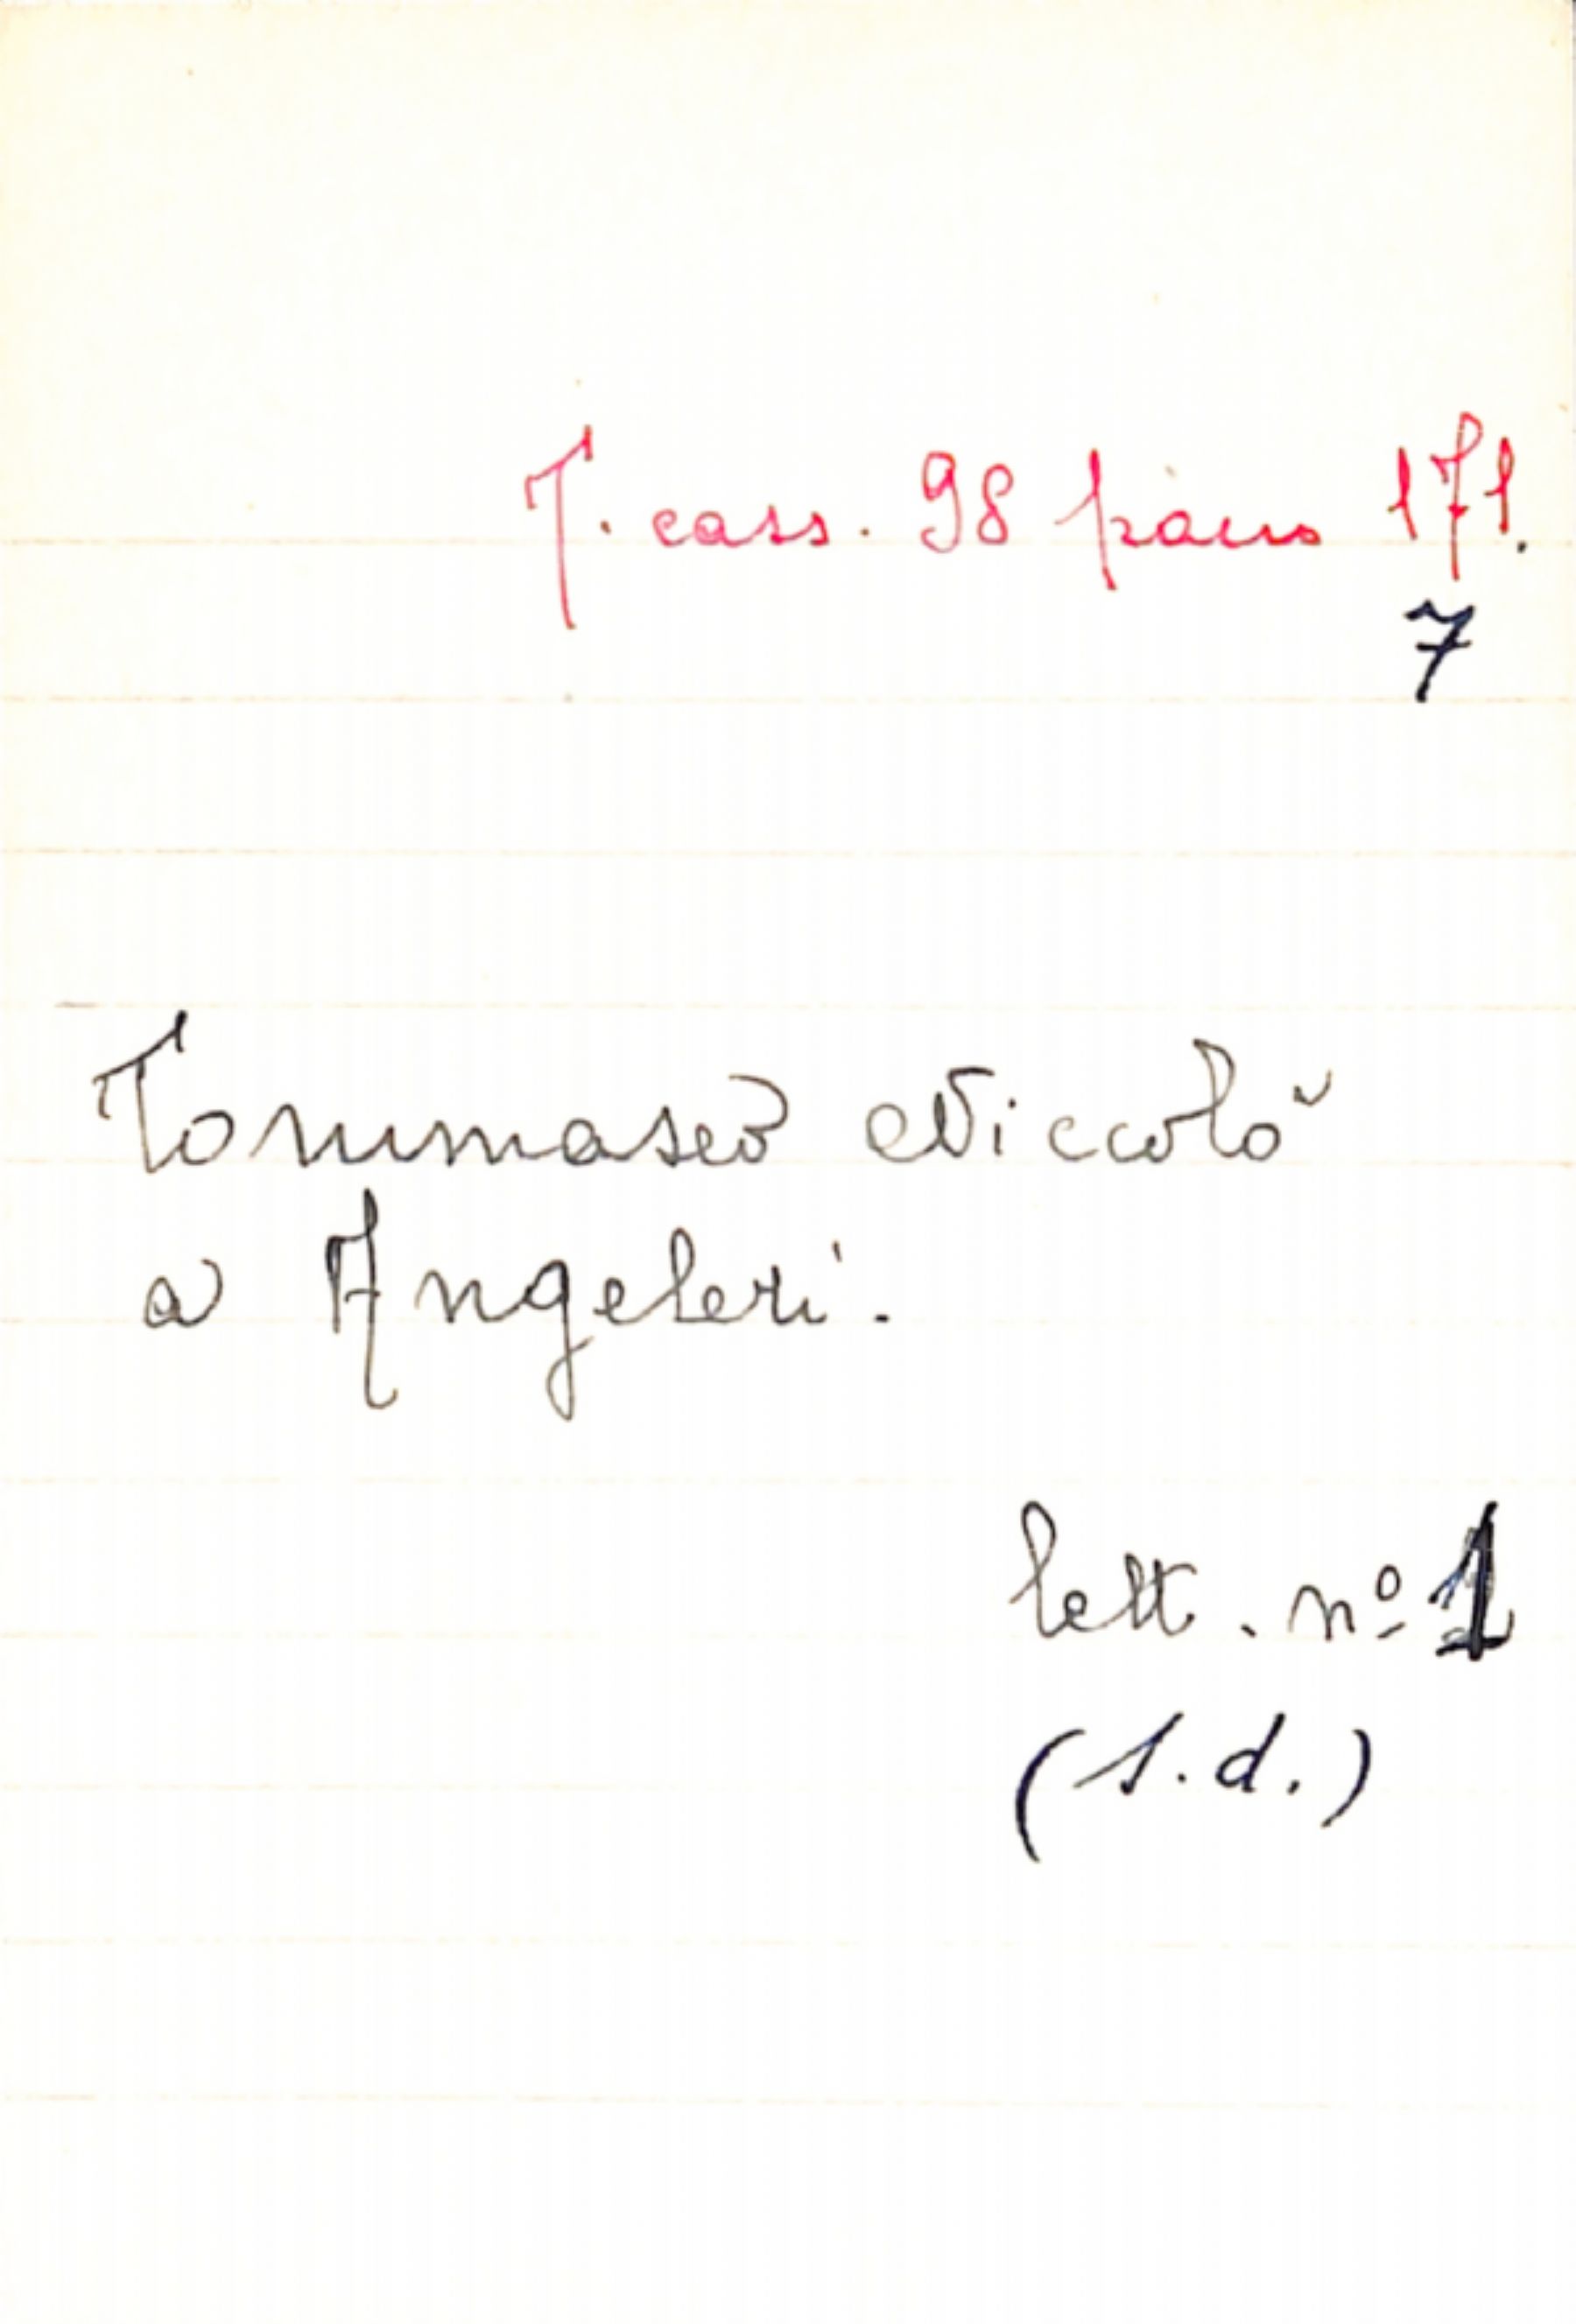 T. cass. 98 pacco 171.
7
Tommaseo Niccolò
a Angeleri.
lett. nº 1
(s.d.)